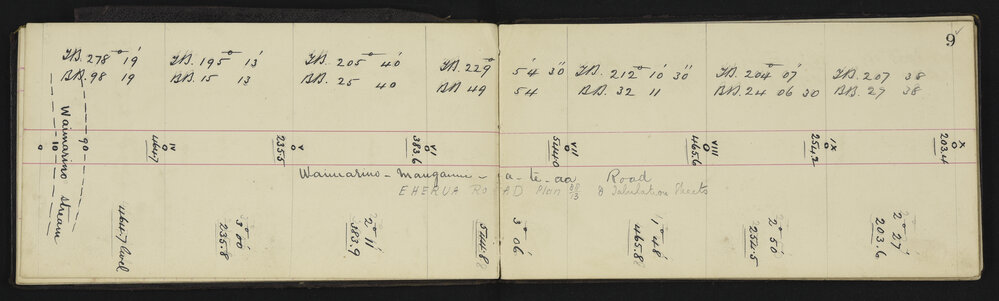 9
F.B. 278° 19'
B.B. 98 19
F.B. 195° 13'
B.B. 15 13
F.B. 205° 40'
B.B. 25 40
F.B. 229° 54' 30"
B.B. 49 54
F.B. 212° 10' 30"
B.B. 32 11
F.B. 204° 07'
B.B. 24 06 30
F.B. 207 38
B.B. 27 38
Waimarino stream
0
10
90
IV
464.7
V
235.5
VI
383.6
VII
544.0
VIII
465.6
IX
254.2
X
203.4
Waimarino - Manganui - a - te - ao Road
EHERUA ROAD Plan 88/13 & Tabulation Sheets
464.7 level
3° 00'
235.8
2° 11'
383.9
544.8
3° 06'
1° 48'
465.8
2° 50'
254.5
2° 27'
203.6